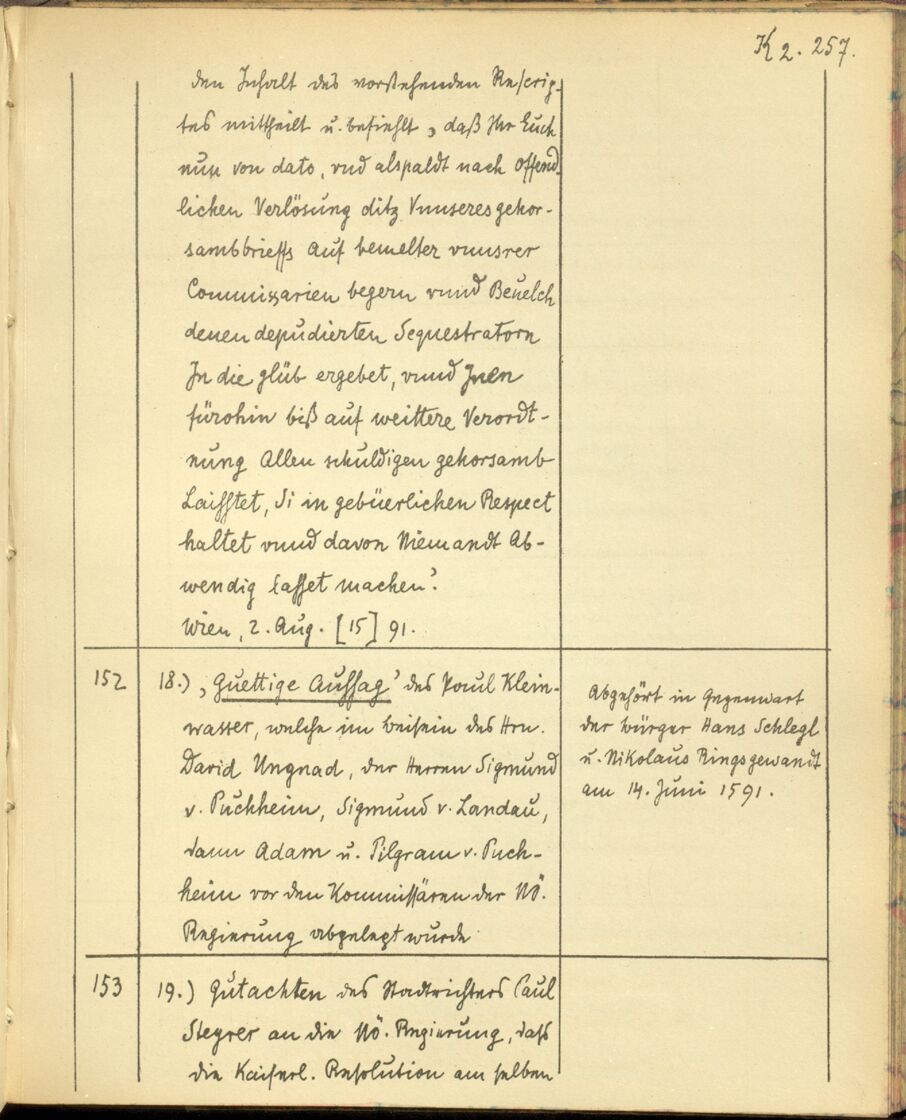 K 2. 257.
den Inhalt des vorstehenden Rescrip-
tes mittheilt u. befiehlt „daß Ihr Euch
nun von dato, vnd alspaldt nach Offend-
lichen Verlösung ditz Vnnseres gehor-
sambbrieffs auf bemelter vnnsrer
Commissarien begern vnnd Beuelch
denen depudierten Sequestratorn
In die glüb ergebet, vnnd Inen
fürohin biß auf weittere Verordt-
nung Allen schuldigen gehorsamb
Laisstet, Si in gebüerlichen Respect
haltet vnnd davon Niemandt Ab-
wendig lasset machen‘.
Wien, 2. Aug. [15] 91.
152
18.) ‚Guettige Aussag‘ des Paul Klein-
wasser, welche im beisein des Hrn.
David Ungnad, der Herren Sigmund
v. Puchheim, Sigmund v. Landau,
dann Adam u. Pilgram v. Puch-
heim vor den Kommissären der NÖ.
Regierung abgelegt wurde
Abgehört in Gegenwart
der bürger Hans Schlegl
u. Nikolaus Ringsgewandt
am 14. Juni 1591.
153
19.) Gutachten des Stadtrichters Paul
Steyrer an die NÖ. Regierung, daß
die Kaiserl. Resolution am selben